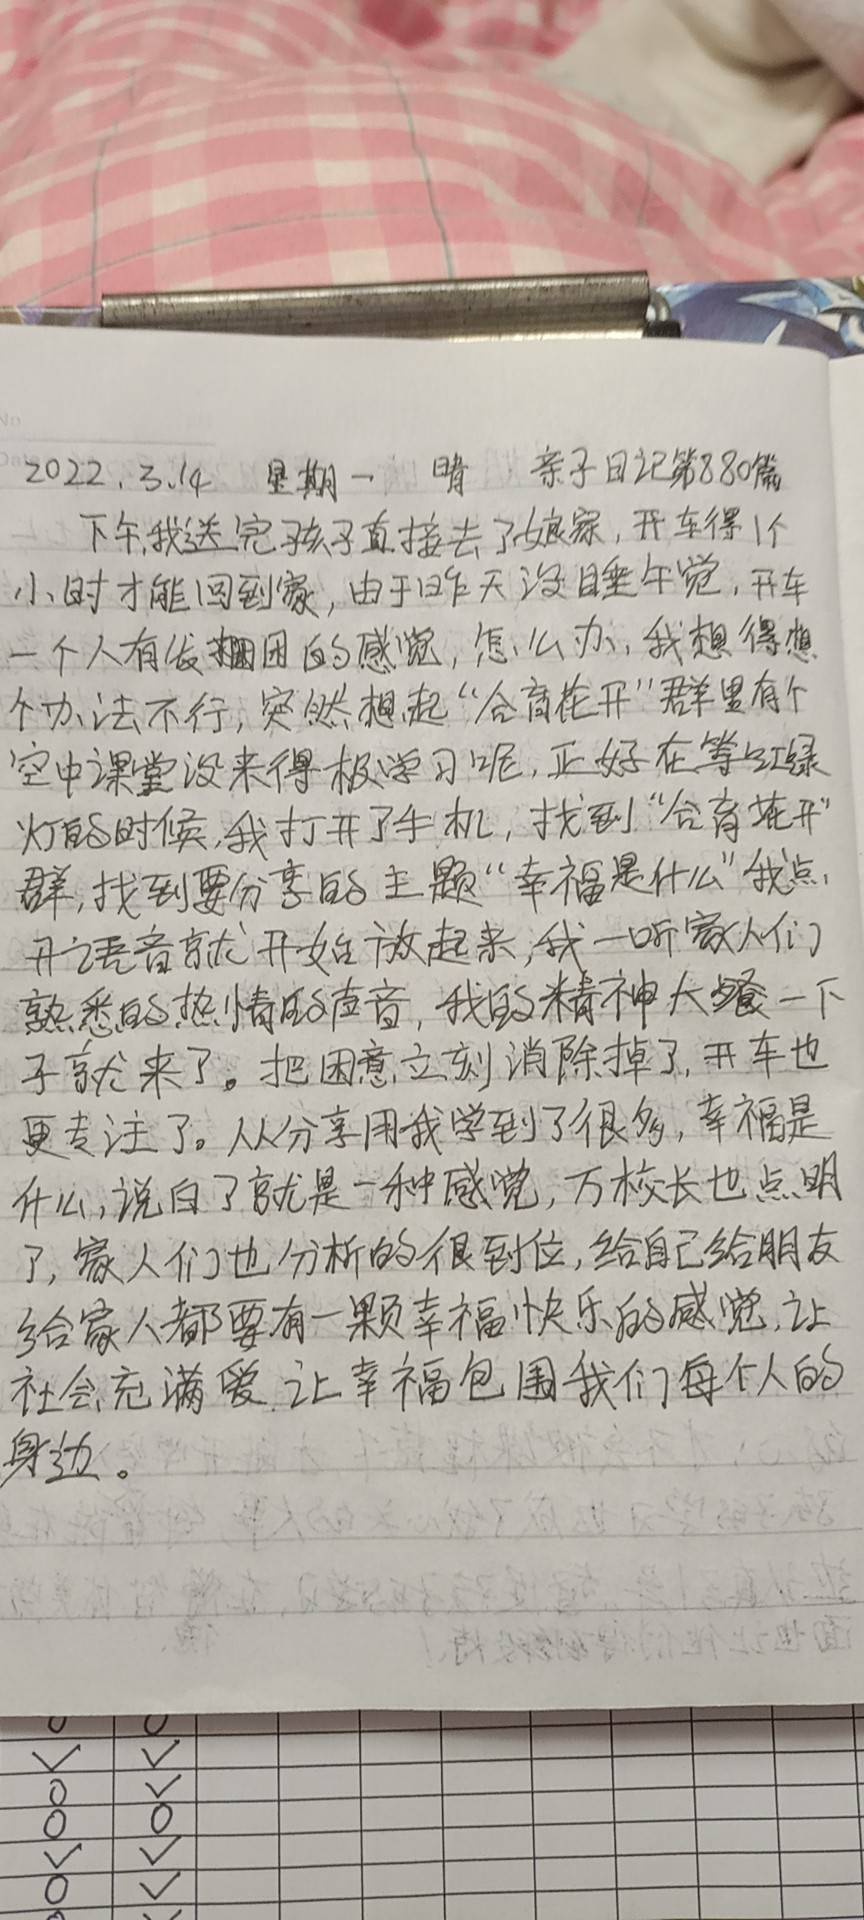 2022.3.14 星期一 晴 亲子日记第880篇
下午我送完孩子直接去了娘家,开车得1个
小时才能回到家,由于昨天没睡午觉,开车
一个人有发困的感觉,怎么办,我想得想
个办法不行,突然想起“合育花开”群里有个
空中课堂没来得极学习呢,正好在等红绿
灯的时候,我打开了手机,找到“合育花开”
群,找到要分享的主题“幸福是什么”我点
开语音就开始放起来,我一听家人们
熟悉的热情的声音,我的精神大餐一下
子就来了。把困意立刻消除掉了,开车也
更专注了。从分享用我学到了很多,幸福是
什么,说白了就是一种感觉,万校长也点明
了,家人们也分析的很到位,给自己给朋友
给家人都要有一颗幸福快乐的感觉,让
社会充满爱,让幸福包围我们每个人的
身边。